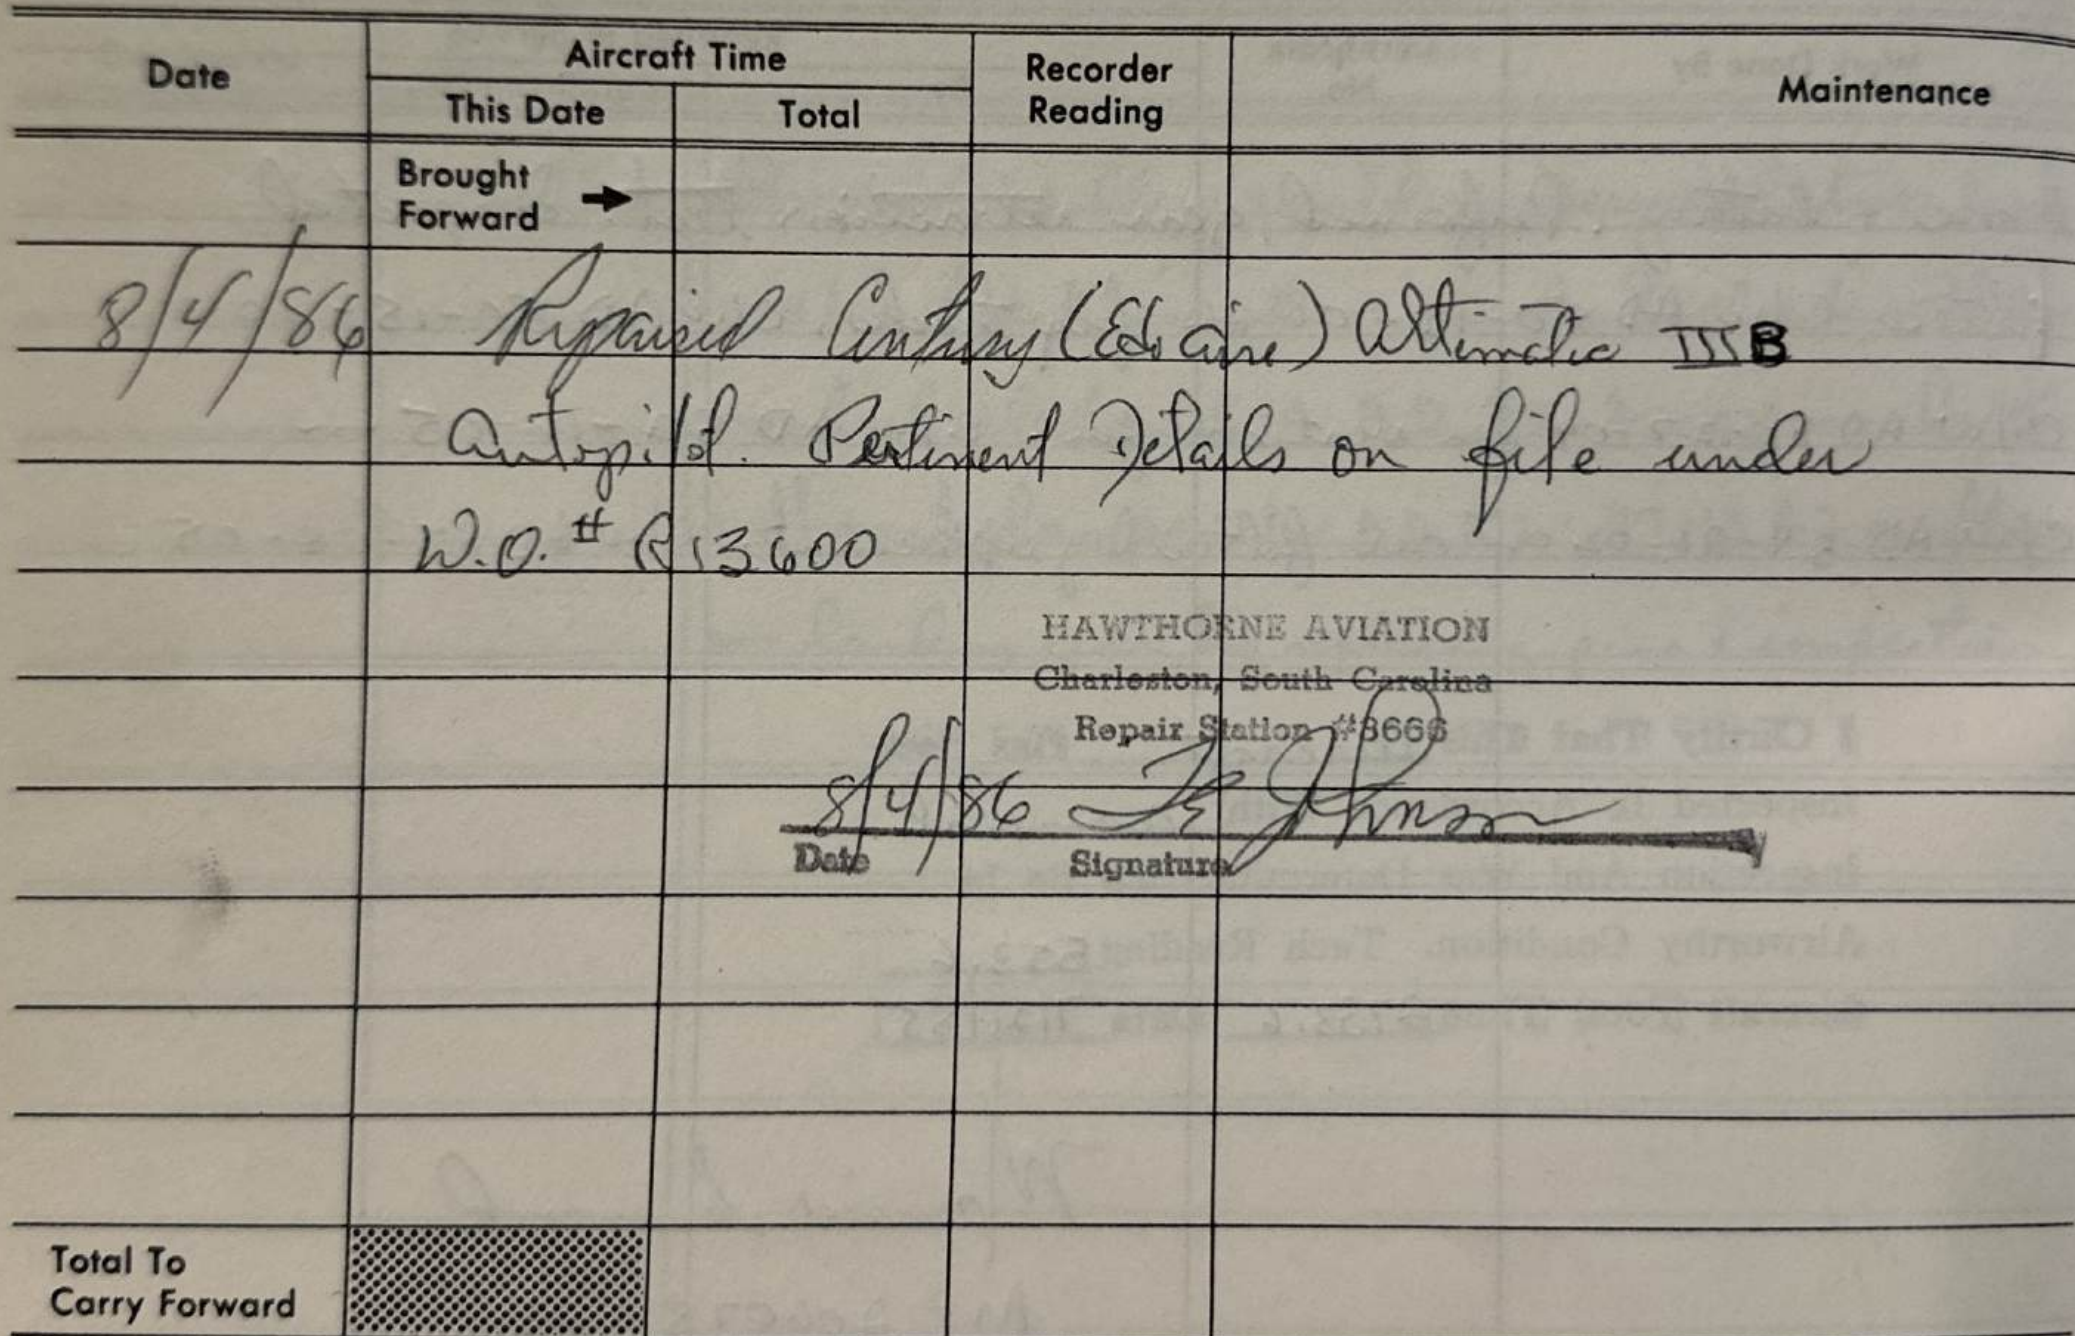 Date
Aircraft Time
This Date
Total
Recorder
Reading
Maintenance
Brought
Forward
8/4/86 Repaired Century (Edo aire) Altimatic IIIB
Autopilot. Pertinent Details on file under
W.O. # R13600
HAWTHORNE AVIATION
Charleston, South Carolina
Repair Station #3666
8/4/86 Johnson
Date Signature
Total To
Carry Forward